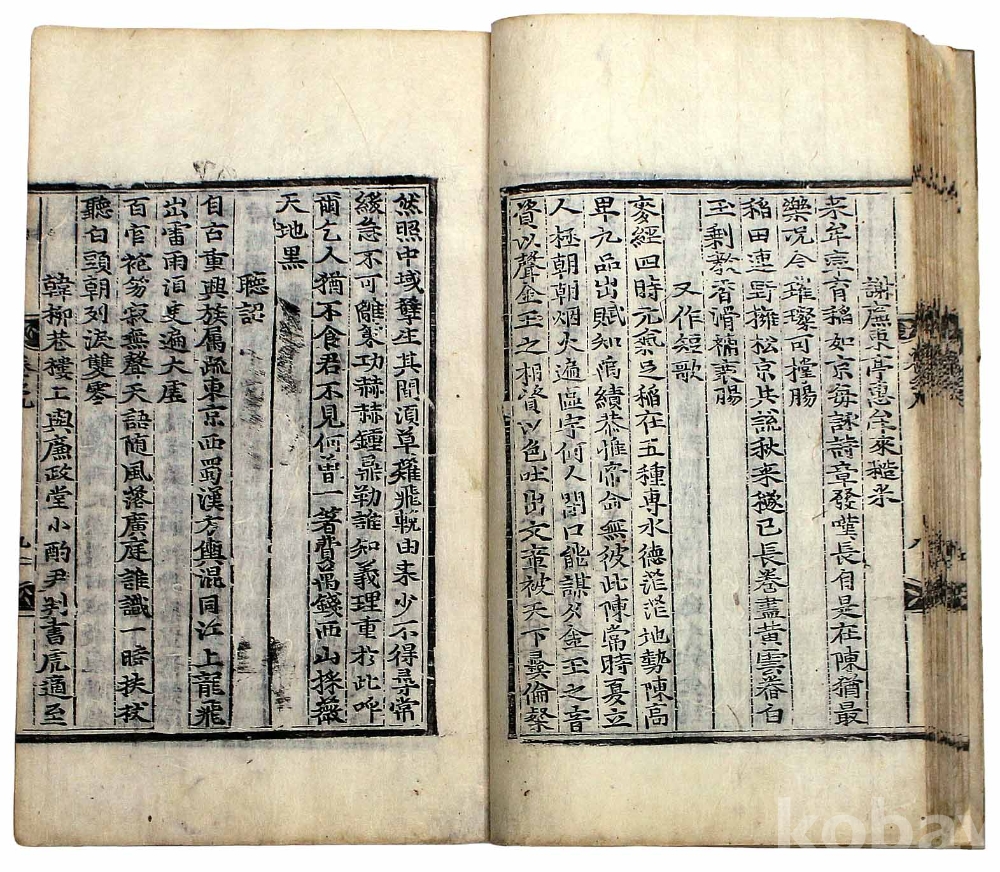 謝廉東亭惠牟來糙米
來牟率育稻如京每詠詩章發嘆長自是在陳猶最
樂况今璀璨可撐腸
稻田連野擁松京共說秋来穟已長卷盡黃雲舂白
玉剩教香滑補衰腸
又作短歌
麥經四時元氣足稻在五種専水德茫茫地勢陳高
卑九品出賦知績恭惟帝命無彼此陳常時夏立
人極朝朝烟火遍區宇何人開口能謀夕金玉之音
資以聲金玉之相資以色吐出文章被天下彛倫粲
然照中域孼生其間須草薙飛輓由来少不得尋常
緩急不可離豪功赫赫鍾鼎勒誰知義理重於此呼
爾乞人猶不食君不見何曾一箸費萬錢西山採薇
天地黑
聽詔
自古重興族属疏東京西蜀漢方輿混同江上龍飛
出雷雨更遍大虛
百官袍笏寂無聲天語随風落廣庭誰識一時扶杖
聽白頭朝列淚雙零
韓柳巷樓上與廉政堂小酌尹判書虎適至
koba